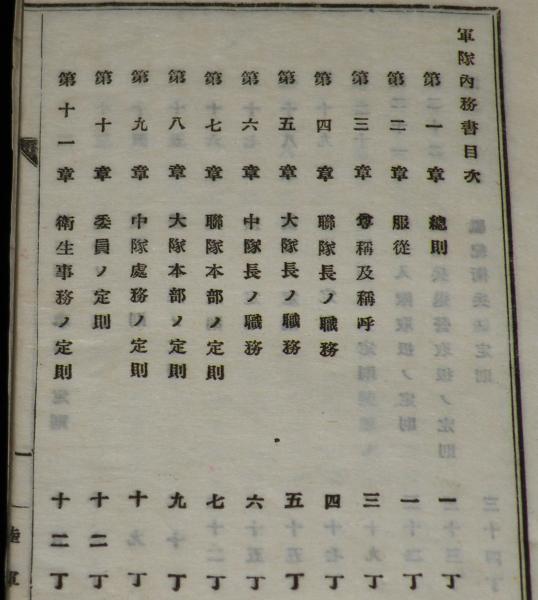 軍隊內務書目次
第一章 總則 一丁
第二章 服從 一丁
第三章 尊稱及稱呼 三丁
第四章 聯隊長ノ職務 四丁
第五章 大隊長ノ職務 五丁
第六章 中隊長ノ職務 六丁
第七章 聯隊本部ノ定則 七丁
第八章 大隊本部ノ定則 九丁
第九章 中隊處務ノ定則 十丁
第十章 委員ノ定則 十二丁
第十一章 衛生事務ノ定則 十二丁
一
陸軍